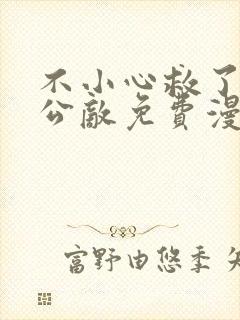 不小心救了
公敵免費漫
富野由悠季